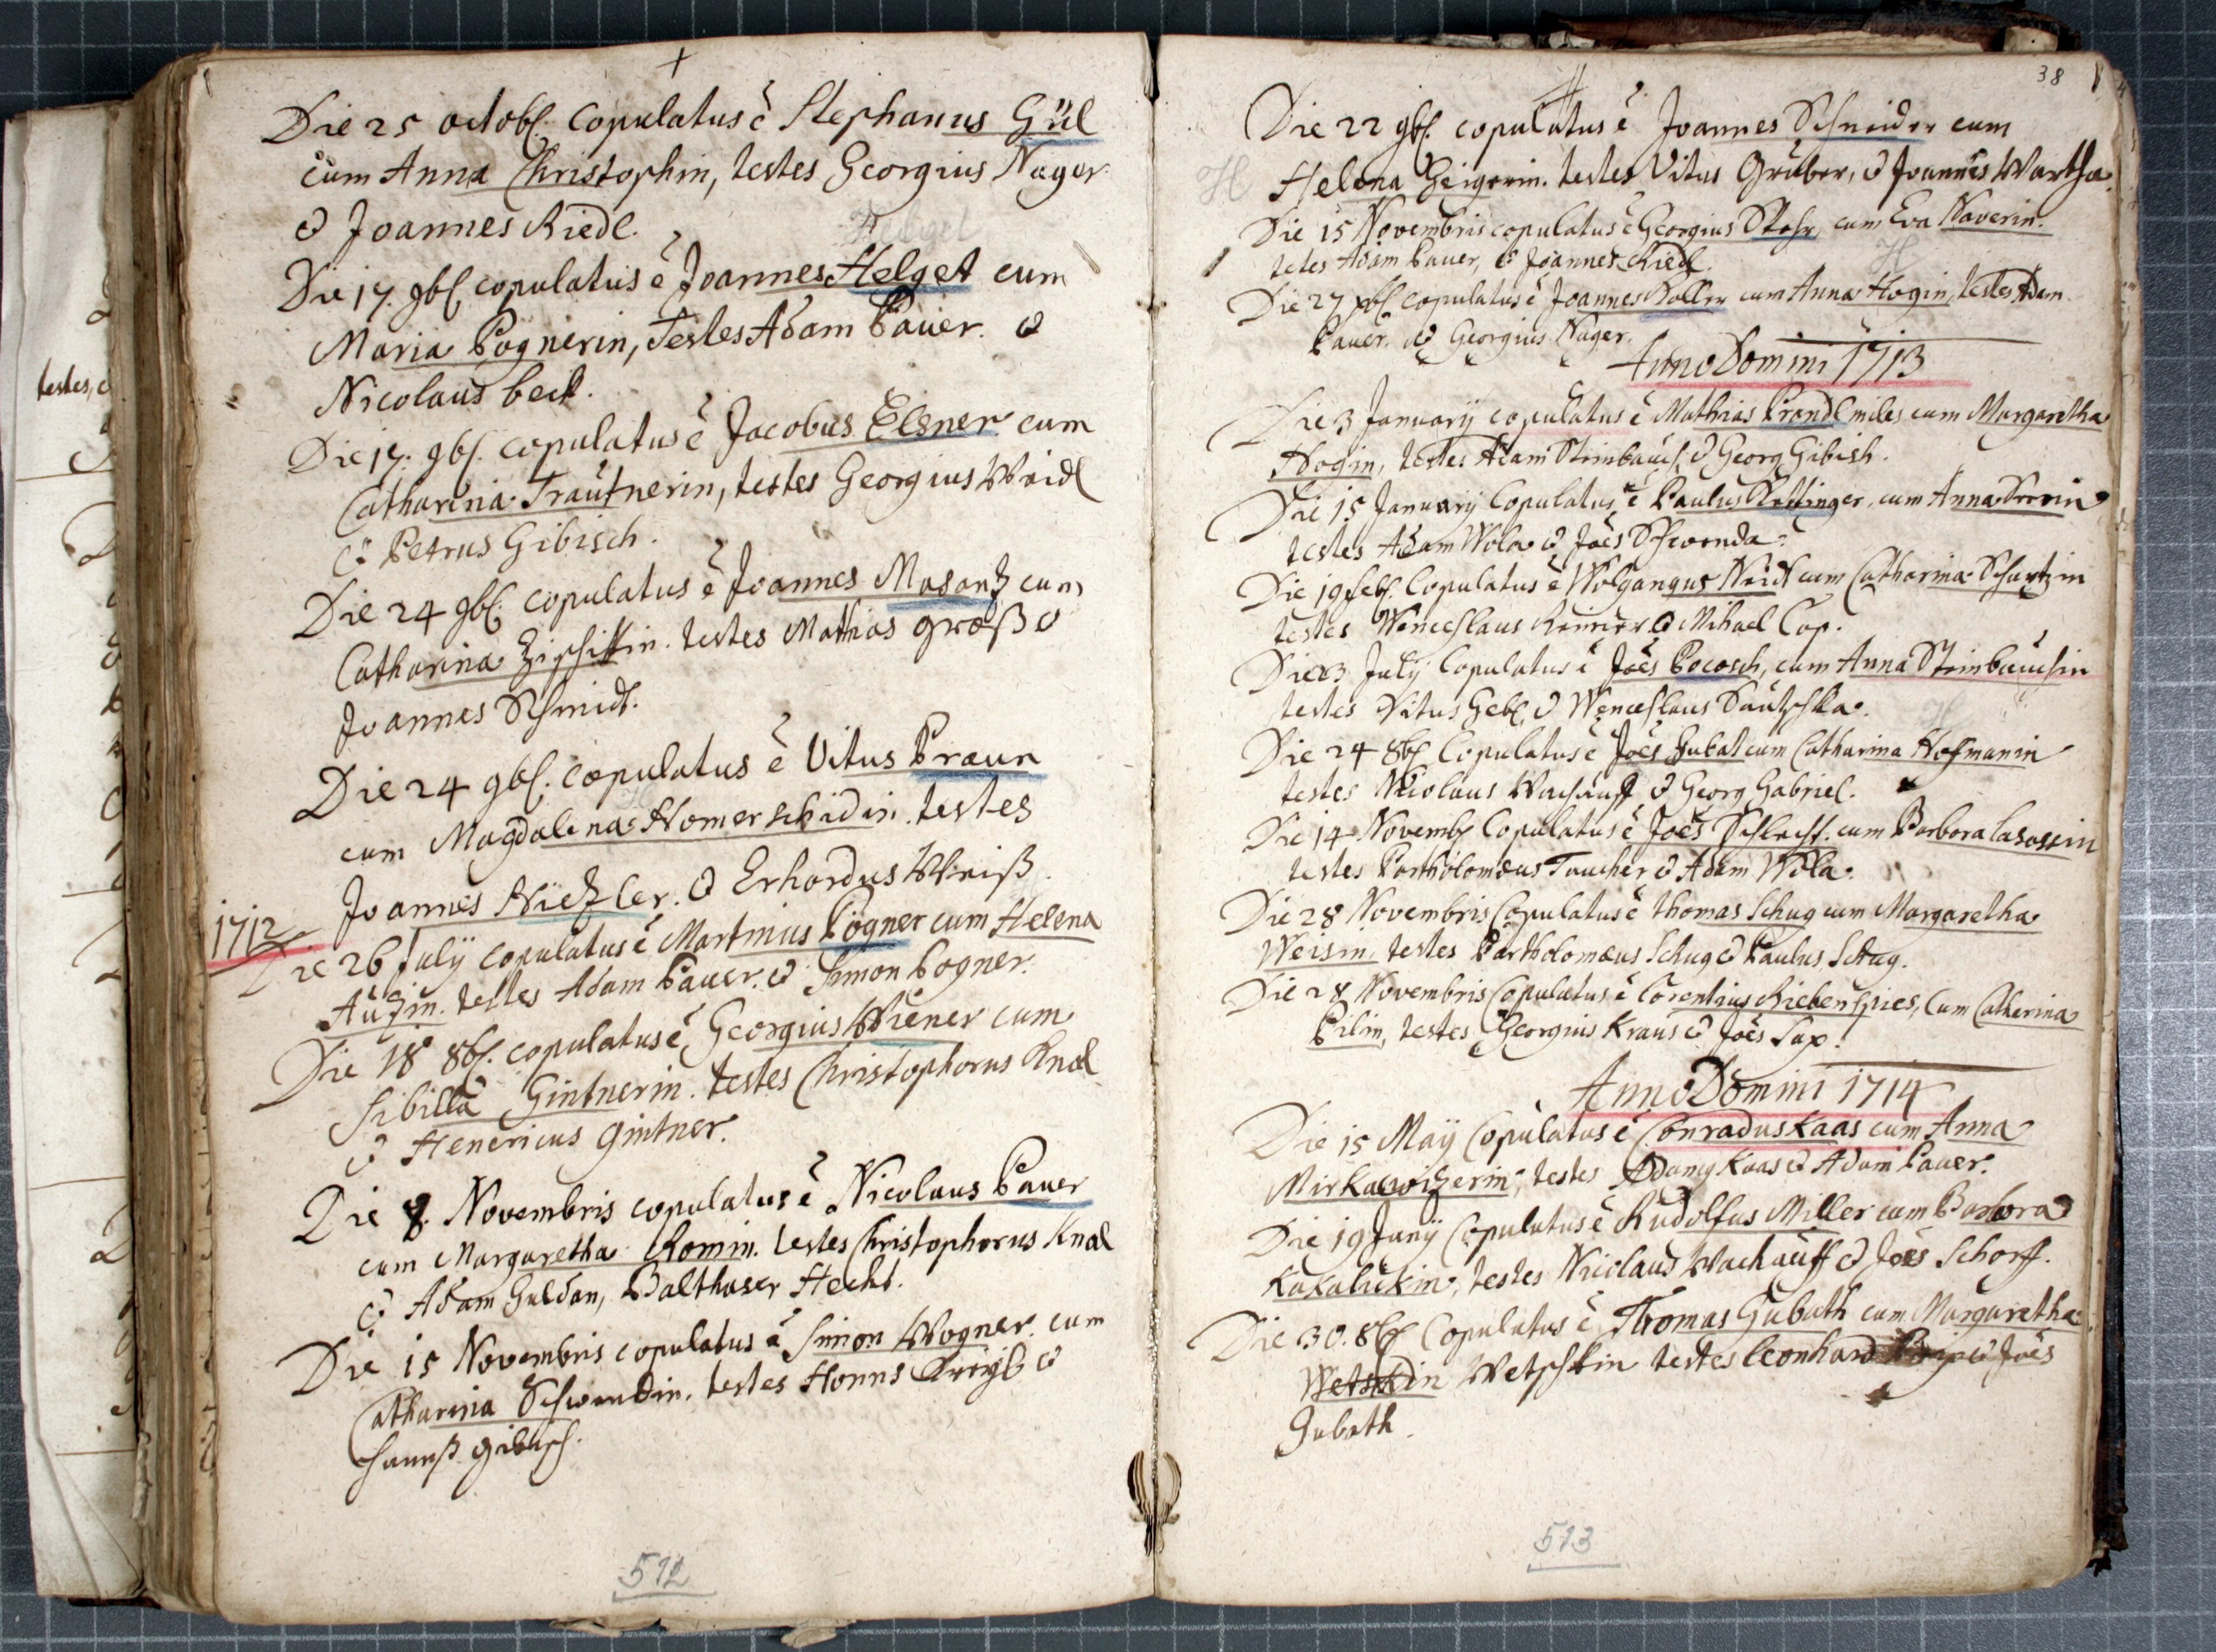 testes, &
+
Die 25 octobr. copulatus ē Stephanus Gül
cum Anna Christophin, testes Georgius Nager
& Joannes Riedl.
Helget
Die 17. 9br. copulatus ē Joannes Helget cum
Maria Pognerin, Testes Adam Pauer. &
Nicolaus beck.
Die 17. 9br. copulatus ē Jacobus Elsner cum
Catharina Trautnerin, testes Georgius Weidl
& Petrus Gibisch.
Die 24 9br. copulatus ē Joannes Masantz cum
Catharina testes Mathias groß &
Joannes Schmidt.
Die 24 9br. copulatus ē Vitus Praun
cum Magdalena Homerschidin. testes
Joannes Nietzler. & Erhardus Weiß.
1712
Die 26 July copulatus ē Martinus Pögner cum Helena
Autzin. testes Adam Pauer. & Simon Pogner.
Die 18 8br. copulatus ē Georgius Wiener cum
Sibilla Gintnerin. testes Christophorus Knal
& Henericus Gintner.
Die 8. Novembris copulatus ē Nicolaus Pauer
cum Margaretha Romin. testes Christophorus Knal
& Adam Guldan, Balthaser Hecht.
Die 15 Novembris copulatus ē Simon Wogner. cum
Catharina Schwendin. testes Honns &
hannß gibisch.
512
38
H
Die 22 9br. copulatus ē Joannes Schneider cum
H Helena Geigerin. testes Vitus Gruber, & Joannes Wartha.
Die 15 Novembris copulatus ē Georgius Stohr, cum Eva Naverin.
tetes Adam Pauer, & Joannes Riedl.
H
Die 27 9br. copulatus ē Joannes Koller cum Anna Hogin, testes Adam
Pauer. & Georgius Nager.
Anno Domini 1713
Die 3 January copulatus ē Mathias Prandl miles cum Margaretha
Hogin, testes Adam Steinbauch, & Georg Gibish.
Die 15 January Copulatus ē Paulus Rettinger, cum Anna
testes Adam Wola & Joēs Schwenda.
Die 19 febr. Copulatus ē Wolgangus Neidl cum Catharina Schertzin
testes Wenceslaus & Mihael Cop.
Die 23 July Copulatus ē Joēs Pocosch, cum Anna Steinbauchin
testes Vitus Gebl, & Wenceslaus Sautschka.
Die 24 8br. Copulatus ē Joēs Gubat cum Catharina Hofmanin
testes Nicolaus Wachauff & Georg Gabriel.
Die 14 Novembr. Copulatus ē Joēs Schlecht. cum Barbora Casassin
testes Partholomæus Taucher & Adam Wola.
Die 28 Novembris Copulatus ē Thomas Schug cum Margaretha
Weisin, testes Partholomæus Schug & Paulus Schug.
Die 28 Novembris Copulatus ē Corentius Riebenspies, Cum Catherina
Pilin, testes Georgius Kraus & Joēs Sax.
Anno Domini 1714
Die 15 Maÿ Copulatus ē Conradus Kaas cum Anna
Mirkawitzerin, testes Adamg Kaas & Adam Pauer.
Die 19 Juny Copulatus ē Rudolfus Miller cum Barbora
Kakaluckin, testes Nicolaus Wachauff & Joēs Schorff.
Die 30. 8br. Copulatus ē Thomas Gubath cum Margaretha
Wetschkin testes Leonhard & Joēs
Gubath.
513